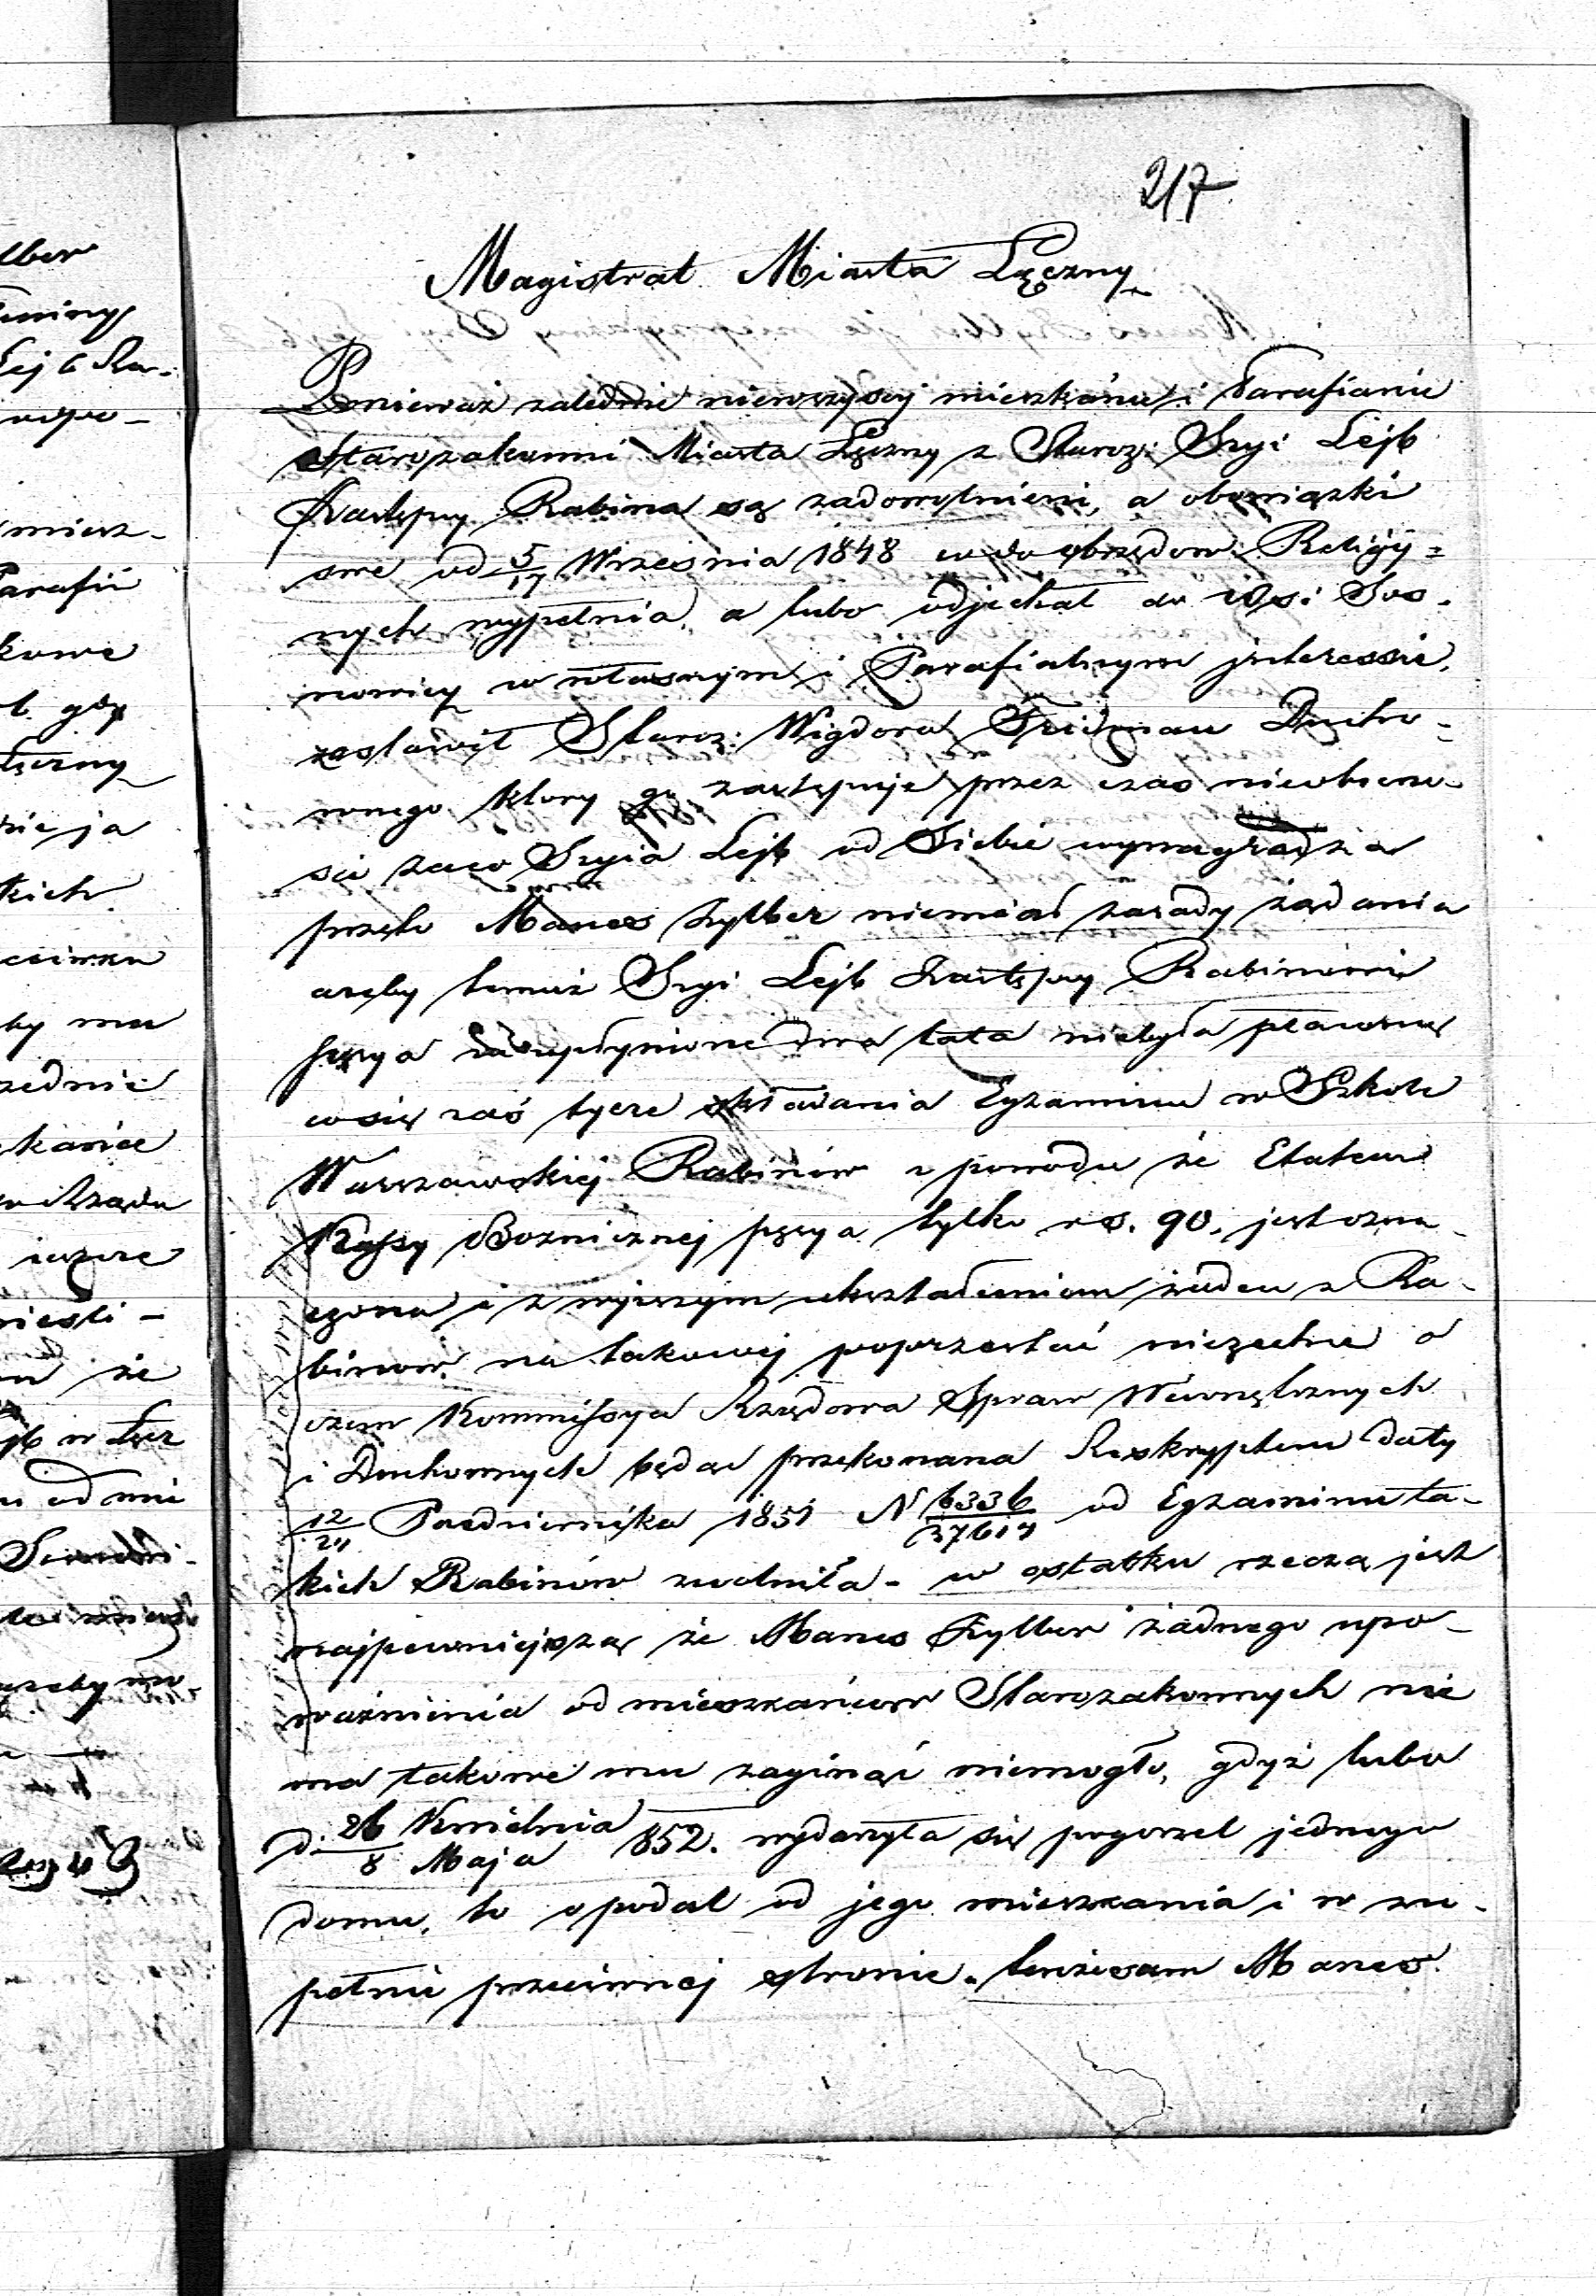 217
Magistrat Miasta Łęczny
Ponieważ zaledwie niewszyscy mieszkańcy i Parafianie
Starozakonni Miasta Łęczny z Staroz: Szyi Lejb
Zastępcy Rabina są zadowolnieni, a obowiązki
swe od 5/17 Września 1848 co do obrzędow Religij=
nych wypełnia, a lubo odjechał do Wsi Sos-
nowicy w własnym i Parafialnym jnteressie,
zostawił Staroz: Wigdora Fridman Ducho-
wnego ktory go zastępuje przez czas nieobecno-
sci zaco Szyia Lejb od Siebie wynagradza
przeto Manes Zylber niemiał zasady żądania
ażeby temuż Szyi Lejb Zastępcy Rabinowi
pensya za upłynione dwa lata niebyła płaconą
cosię zaś tycze składania Egzaminu w Szkole
Warszawskiej Rabinów z powodu że Etatem
Kassy Boznicznej pęsya tylko rs. 90, jest ozna-
czona i z wyższym ukształceniem żaden z Ra-
binow na takowej poprzestać niezechce o
czem Kommissya Rządowa Spraw Wewnętrznych
i Duchownych będąc przekonana Reskryptem daty
12/24 Październiką 1851 N 6336/37617 od Egzaminu ta-
kich Rabinów zwolniła - w ostatku rzeczą jest
najpewniejszą że Manes Zylber żadnego upo-
ważnienia od mieszkańcow Starozakonnych nie
ma takowe mu zaginąć niemogło, gdyż lubo
d. 26 Kwietnia/8 Maja 852. wydarzyła się pogorzel jednego
domu, to opodal od jego mieszkania i w zu-
pełnie przeciwnej stronie. tenżesam Manes
lber
Lejb
miesz-
Parafii
kowe
gdy
Łęczny
ja
kich
by ma
rzednie
Rządu
jeszcze
że
w Łęcz
od mni